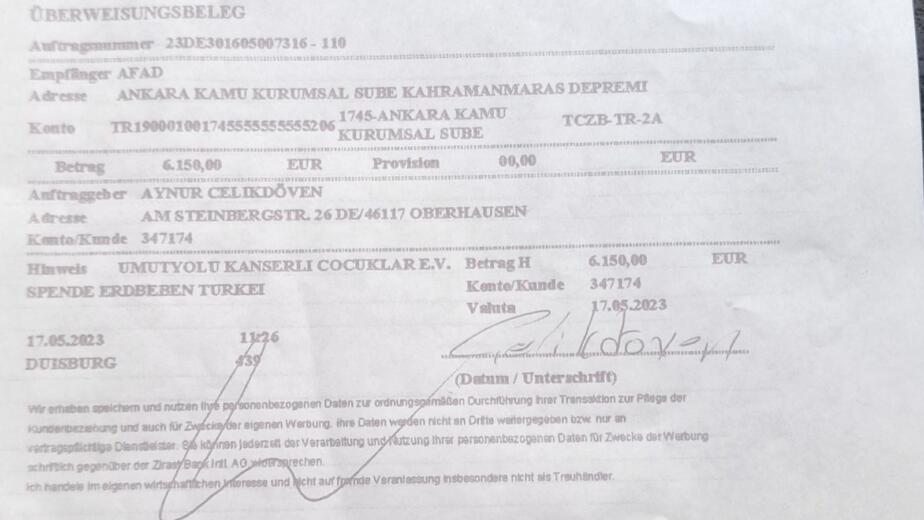 ÜBERWEISUNGSBELEG
Auftragnummer 23DE301605007316 - 110
Empfänger AFAD
Adresse ANKARA KAMU KURUMSAL SUBE KAHRAMANMARAS DEPREMI
Konto TR190001001745555555555206 1745-ANKARA KAMU KURUMSAL SUBE TCZB-TR-2A
Betrag 6.150,00 EUR Provision 00,00 EUR
Auftraggeber AYNUR CELIKDÖVEN
Adresse AM STEINBERGSTR. 26 DE/46117 OBERHAUSEN
Konto/Kunde 347174
Hinweis UMUTYOLU KANSERLI COCUKLAR E.V. Betrag H 6.150,00 EUR
SPENDE ERDBEBEN TURKEI Konto/Kunde 347174
Valuta 17.05.2023
17.05.2023 11:26
DUISBURG 439 Celikdoven
(Datum / Unterschrift)
Wir erheben speichern und nutzen Ihre personenbezogenen Daten zur ordnungsgemäßen Durchführung Ihrer Transaktion zur Pflege der
Kundenbeziehung und auch für Zwecke der eigenen Werbung. Ihre Daten werden nicht an Dritte weitergegeben bzw. nur an
vertragspflichtige Dienstleister. Sie können jederzeit der Verarbeitung und Nutzung Ihrer personenbezogenen Daten für Zwecke der Werbung
schriftlich gegenüber der Ziraat Bank Intl. AG widersprechen.
Ich handele im eigenen wirtschaftlichen Interesse und nicht auf fremde Veranlassung insbesondere nicht als Treuhändler.